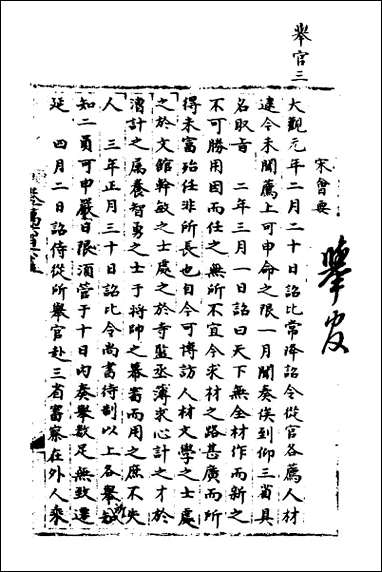 舉官三
宋會要
大觀元年二月二十日詔比常降詔令從官各薦人材
達今未聞薦上可申命之限一月聞奏俟到仰三省具
名取旨　二年三月一日詔曰天下無全材作而新之
不可勝用因而任之無所不宜今求材之路甚廣而所
得未富殆任非所長也自今可博訪人材文學之士處
之於文館幹敏之士處之於寺監丞簿求心計之才於
漕計之屬養智勇之士于將帥之幕審而用之庶不失
人　三年正月三十日詔比令尚書待制以上各舉所
知二員可申嚴日限須管于十日內奏舉數足無致遷
延　四月二日詔侍從所舉官赴三省審察在外人乘